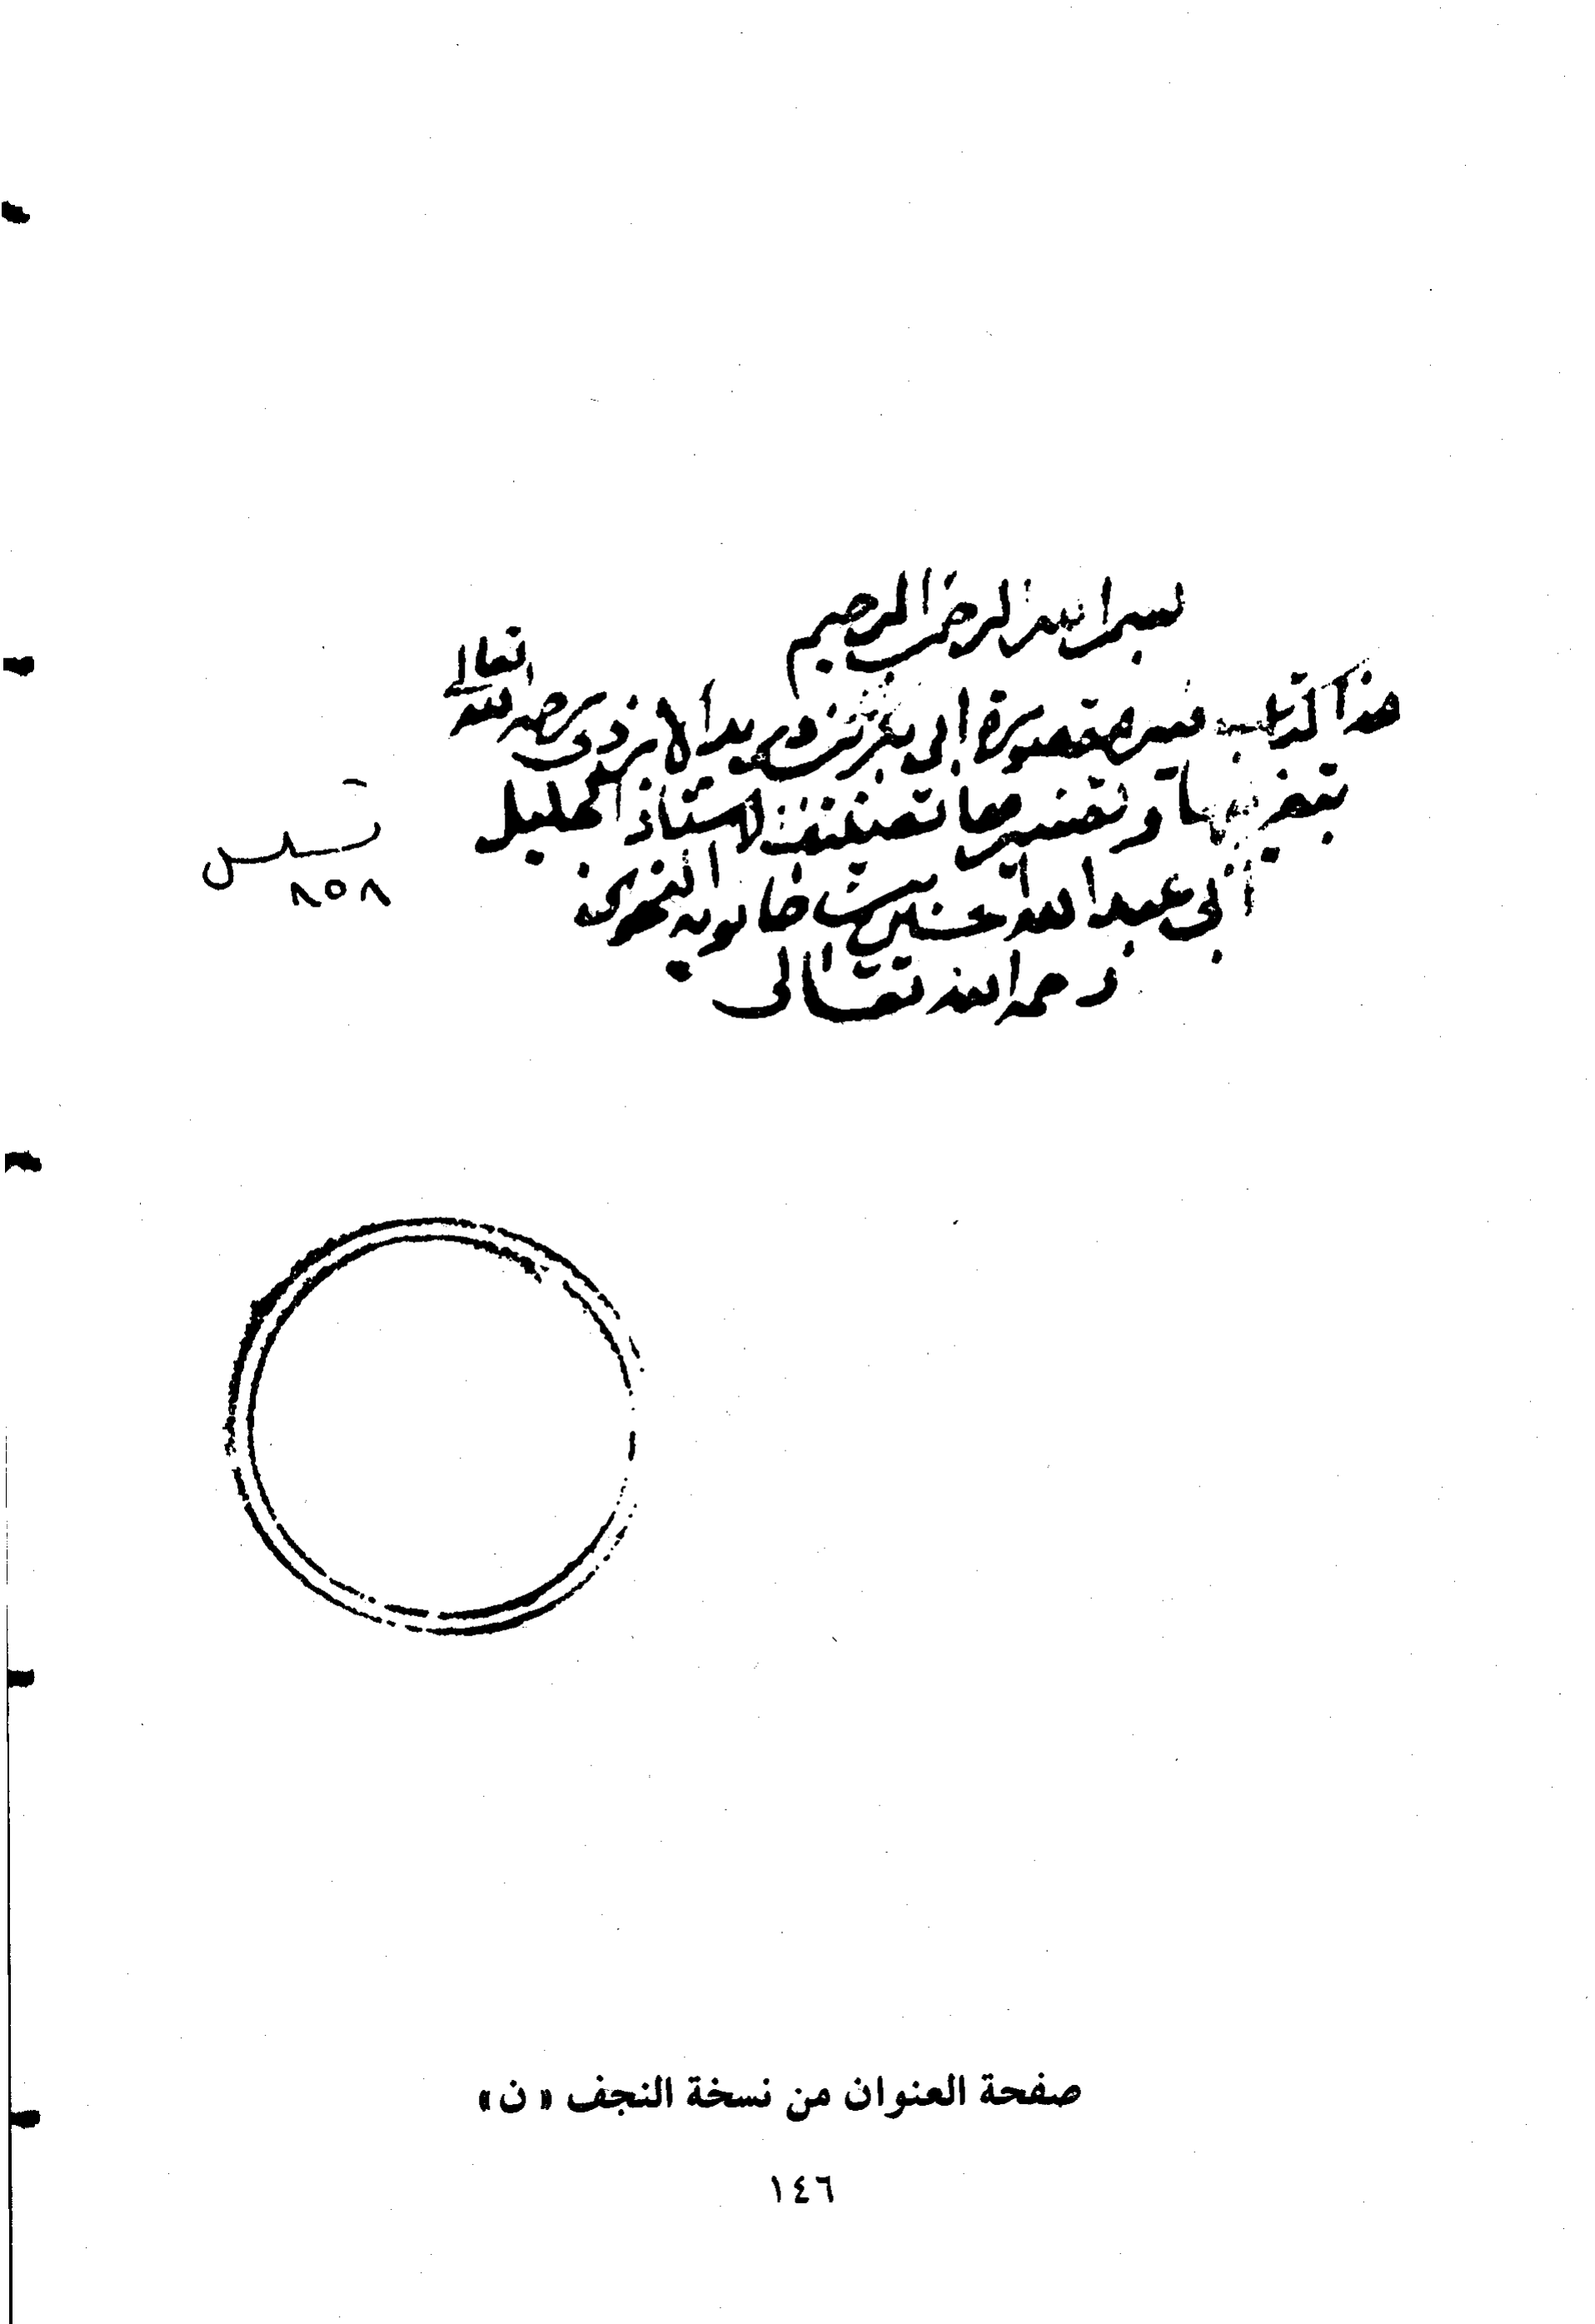 بسم الله الرحمن الرحيم
هذا كتاب شرح مقصورة ابى بكر بن دريد الازدى رحمه الله تعالى
بتعريبها وتفسيرها تصنيف الاستاذ الجليل
أبي عبد الله الحسين بن خالويه النحوى
رحمه الله تعالى
٨٥٨
صفحة العنوان من نسخة النجف « ن »
١٤٦